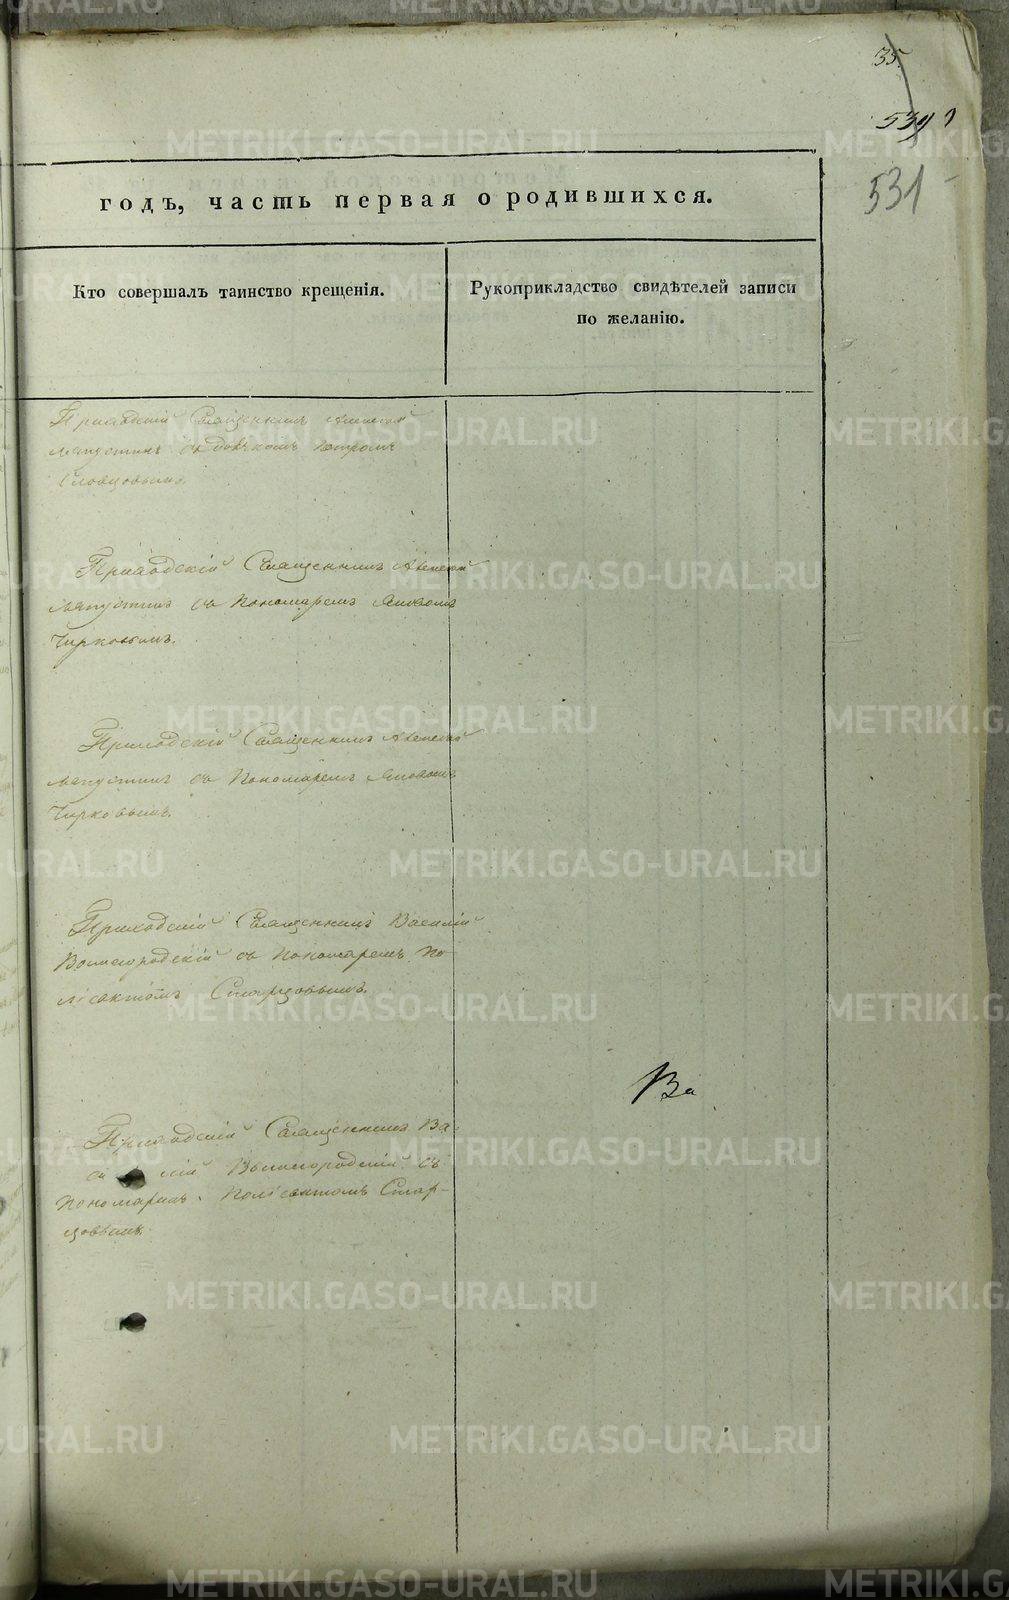 35
539
531
годъ, часть первая о родившихся.
Кто совершалъ таинство крещенія.
Рукоприкладство свидѣтелей записи
по желанію.
Приходскій Священникъ Алексѣй
Лапустинъ съ дьячкомъ Петромъ
Словцовымъ.
Приходскій Священникъ Алексѣй
Лапустинъ съ Пономаремъ Яковомъ
Чирковымъ.
Приходскій Священникъ Алексѣй
Лапустинъ съ Пономаремъ Яковомъ
Чирковымъ.
Приходскій Священникъ Василій
съ Пономаремъ По
ліевктомъ Старцовымъ.
Ва
Приходскій Священникъ Ва-
си лій съ
Пономаремъ Поліевктомъ Стар-
цовымъ.
METRIKI.GASO-URAL.RU